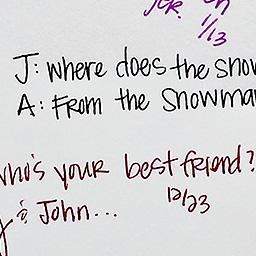 1/13
J: where does the snow
A: From the snowma
who's your best friend?
& John...
12/23